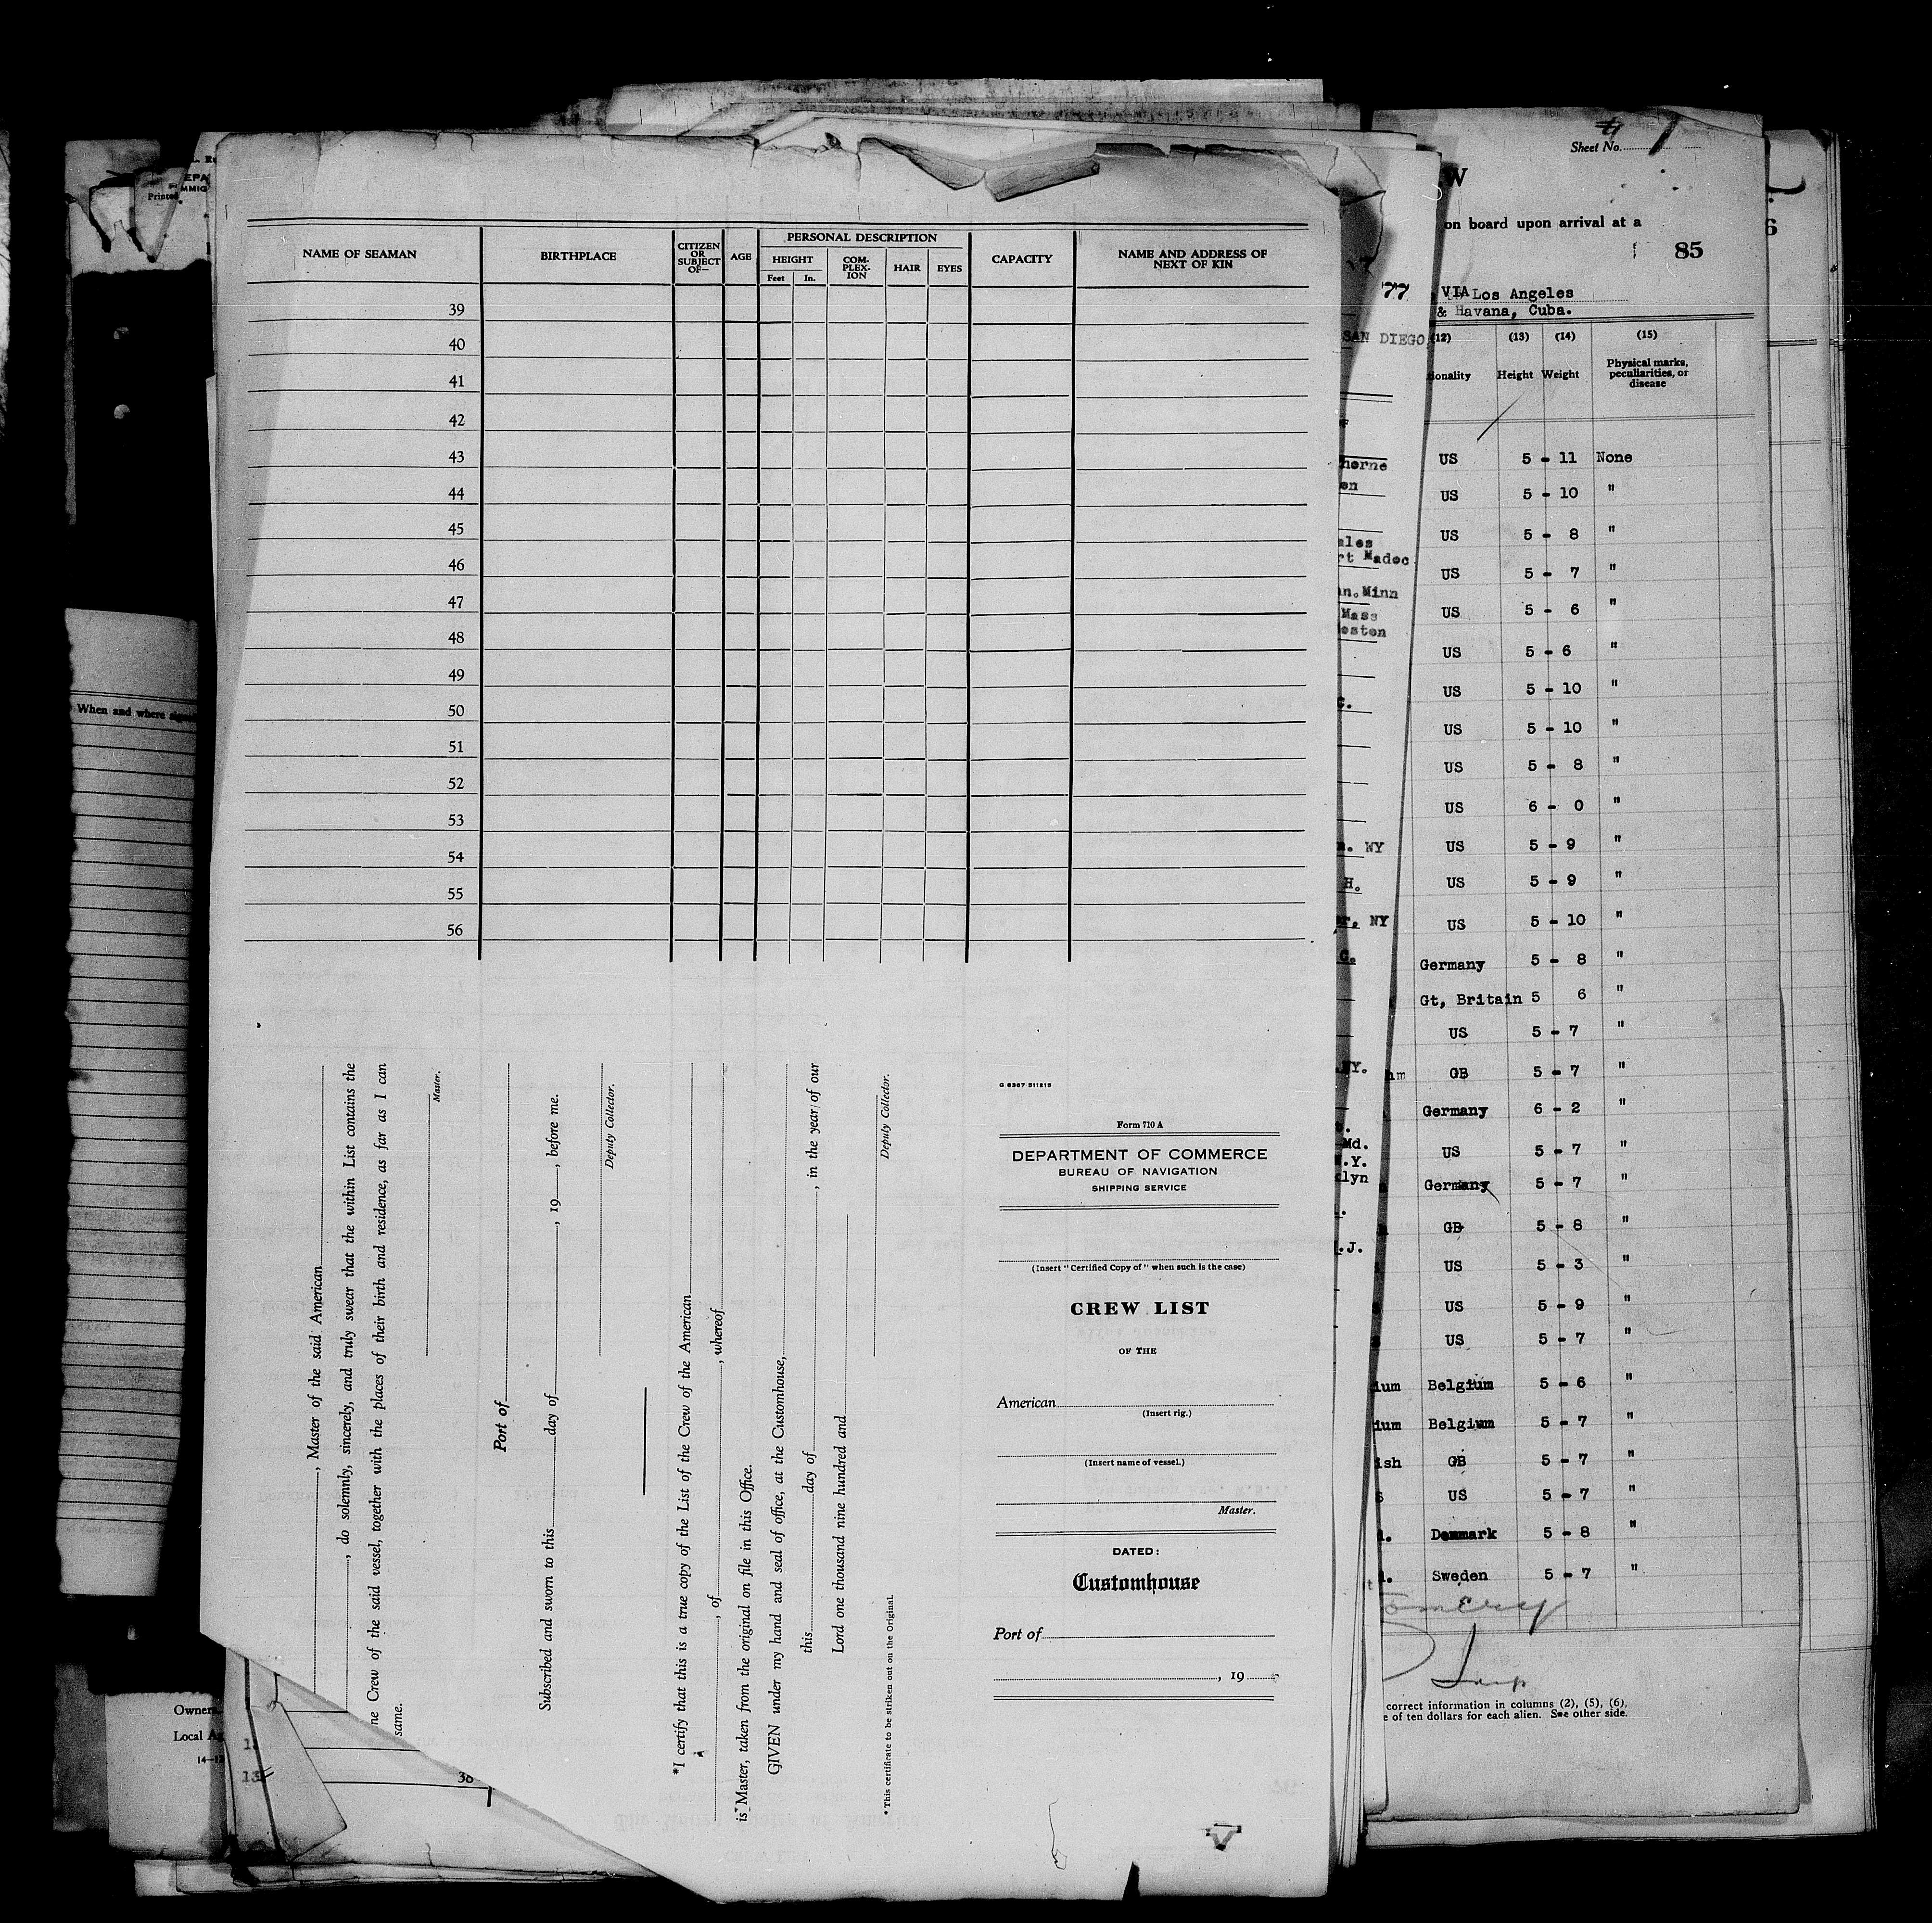 NAME OF SEAMAN BIRTHPLACE CITIZEN OR SUBJECT OF— AGE PERSONAL DESCRIPTION CAPACITY NAME AND ADDRESS OF NEXT OF KIN
HEIGHT COM-PLEX-ION HAIR EYES
Feet In.
39
40
41
42
43
44
45
46
47
48
49
50
51
52
53
54
55
56
, Master of the said American
, do solemnly, sincerely, and truly swear that the within List contains the
ne Crew of the said vessel, together with the places of their birth and residence, as far as I can
same.
Master.
Port of
Subscribed and sworn to this day of , 19 , before me.
Deputy Collector.
*I certify that this is a true copy of the List of the Crew of the American
, of , whereof
is Master, taken from the original on file in this Office.
GIVEN under my hand and seal of office, at the Customhouse,
this day of , in the year of our
Lord one thousand nine hundred and
Deputy Collector.
*This certificate to be striken out on the Original.
Form 710 A
DEPARTMENT OF COMMERCE
BUREAU OF NAVIGATION
SHIPPING SERVICE
(Insert "Certified Copy of" when such is the case)
CREW LIST
OF THE
American
(Insert rig.)
(Insert name of vessel.)
Master.
DATED:
Customhouse
Port of
, 19
38
When and where
Owners
Local A
13
Printed
77
SAN DIEGO
horne
en
ales
rt Madoc
n. Minn
Mass
oston
WY
H.
NY
C.
NY.
Md.
.Y.
klyn
.J.
Sheet No. 1
W
on board upon arrival at a
85
VIA Los Angeles
& Havana, Cuba.
(12) (13) (14) (15)
ionality Height Weight Physical marks, peculiarities, or disease
US 5 - 11 None
US 5 - 10 "
US 5 - 8 "
US 5 - 7 "
US 5 - 6 "
US 5 - 6 "
US 5 - 10 "
US 5 - 10 "
US 5 - 8 "
US 6 - 0 "
US 5 - 9 "
US 5 - 9 "
US 5 - 10 "
Germany 5 - 8 "
Gt, Britain 5 6 "
US 5 - 7 "
GB 5 - 7 "
Germany 6 - 2 "
US 5 - 7 "
Germany 5 - 7 "
GB 5 - 8 "
US 5 - 3 "
US 5 - 9 "
US 5 - 7 "
ium Belgium 5 - 6 "
ium Belgium 5 - 7 "
ish GB 5 - 7 "
US 5 - 7 "
Denmark 5 - 8 "
Sweden 5 - 7 "
correct information in columns (2), (5), (6),
e of ten dollars for each alien. See other side.